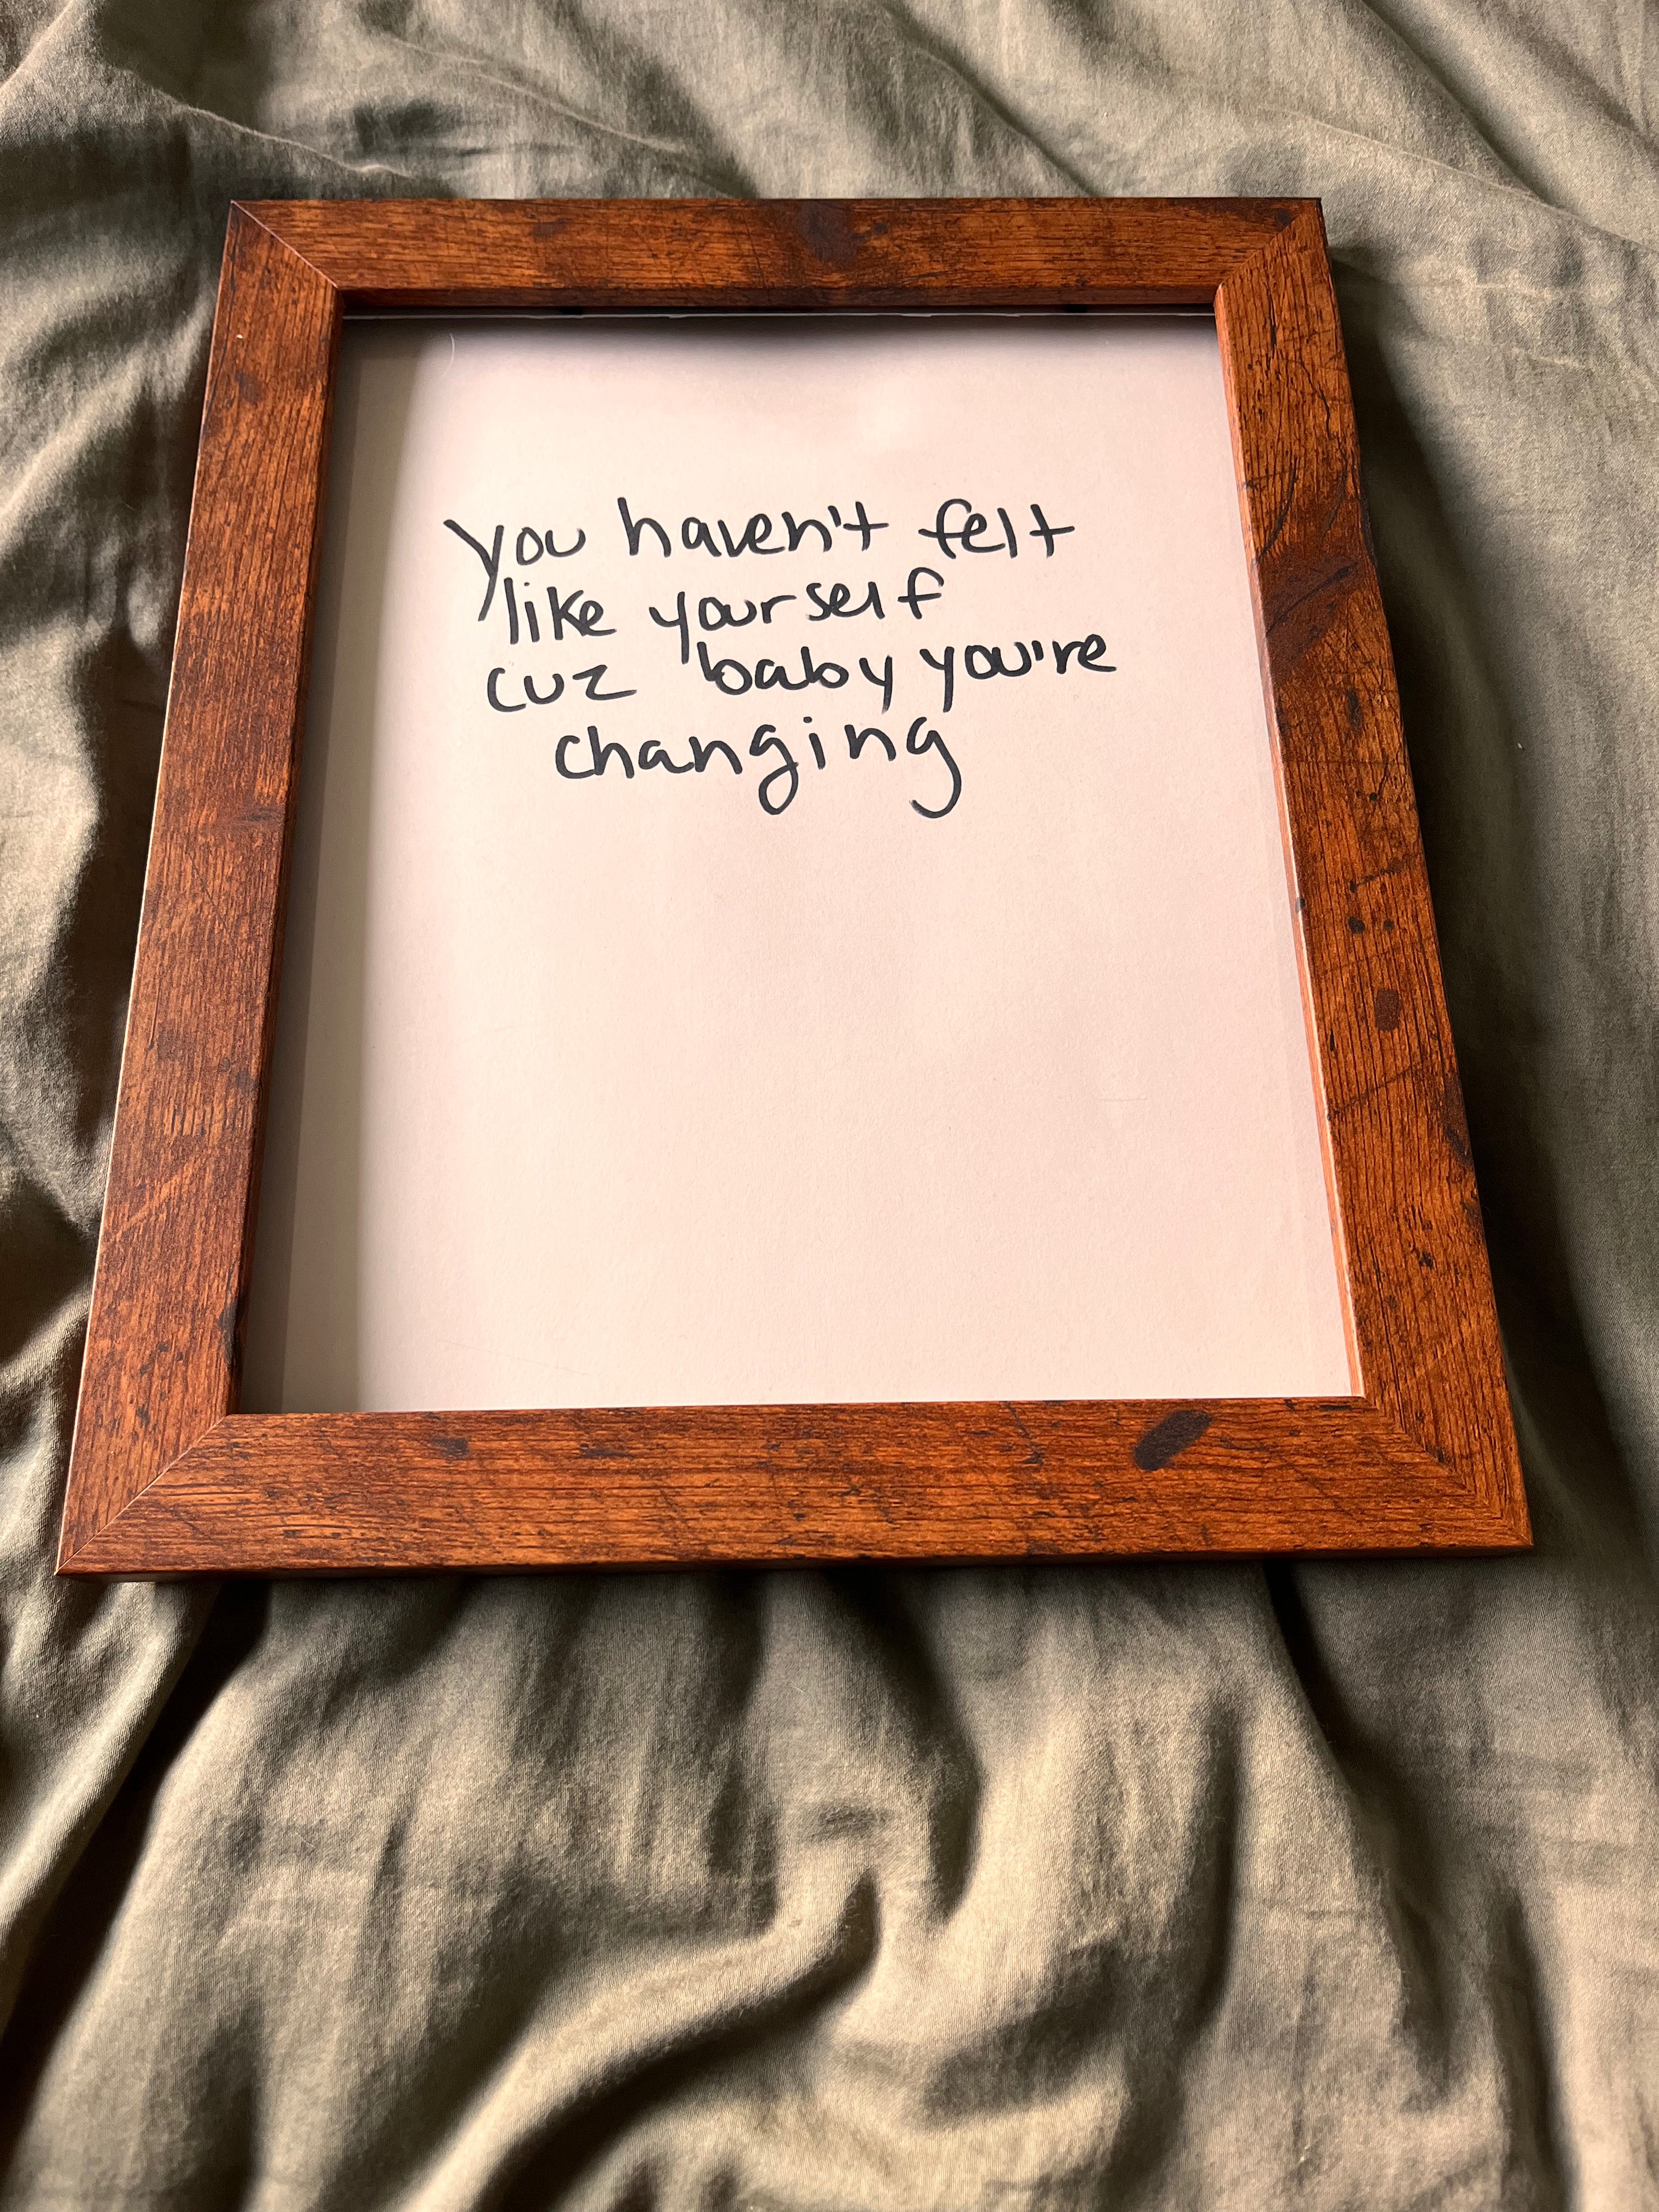 You haven't felt
like yourself
cuz baby you're
changing